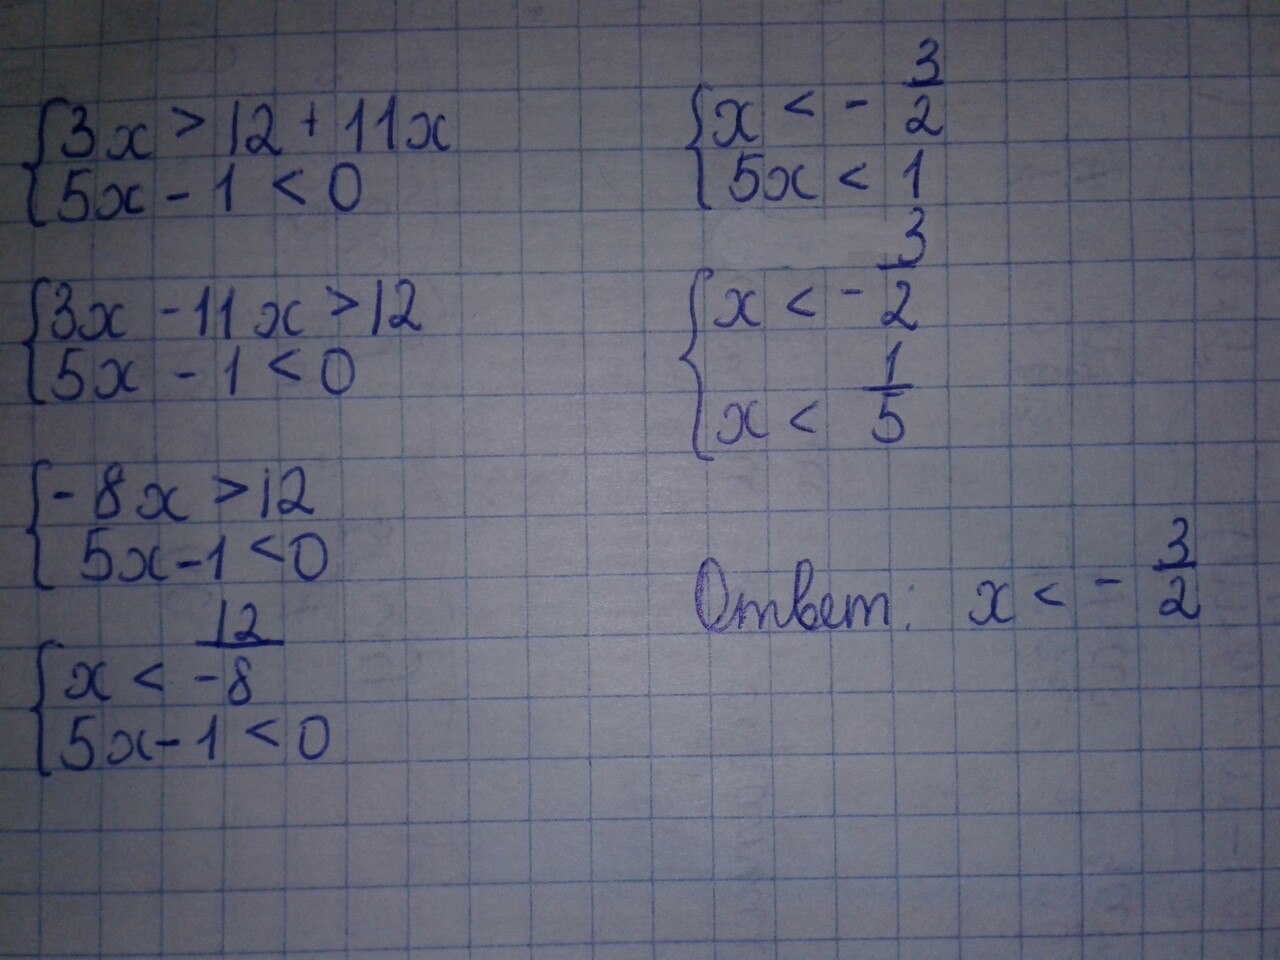 3x > 12 + 11x
5x - 1 < 0
3x - 11x > 12
5x - 1 < 0
- 8x > 12
5x - 1 < 0
x < 12/-8
5x - 1 < 0
x < - 3/2
5x < 1
x < - 3/2
x < 1/5
Ответ: x < - 3/2